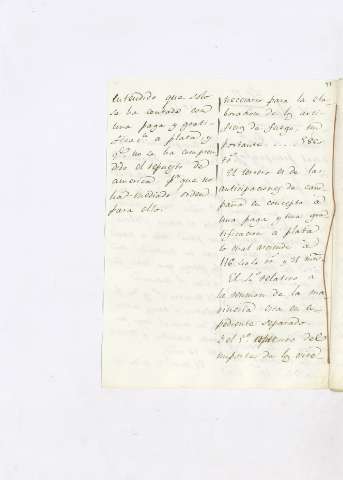 entendido que solo
se ha contado con
una paga y grati-
ficac.n a plata, y
q.e no se ha compren-
dido el repuesto de
america p.r que no
han mediado orden
para ello.
necesario para la ela-
boracion de los arti-
ficios de fuego, im-
portante
r.s
El tercero es de las
anticipaciones de cam-
paña en concepto a
una paga y una gra-
tificacion a plata
lo cual asciende a
116 r.s y 21 m.s
El 4.o relativo a
la reunion de la ma-
esta en es-
pediente separado.
Y el 5.o del
importe de los